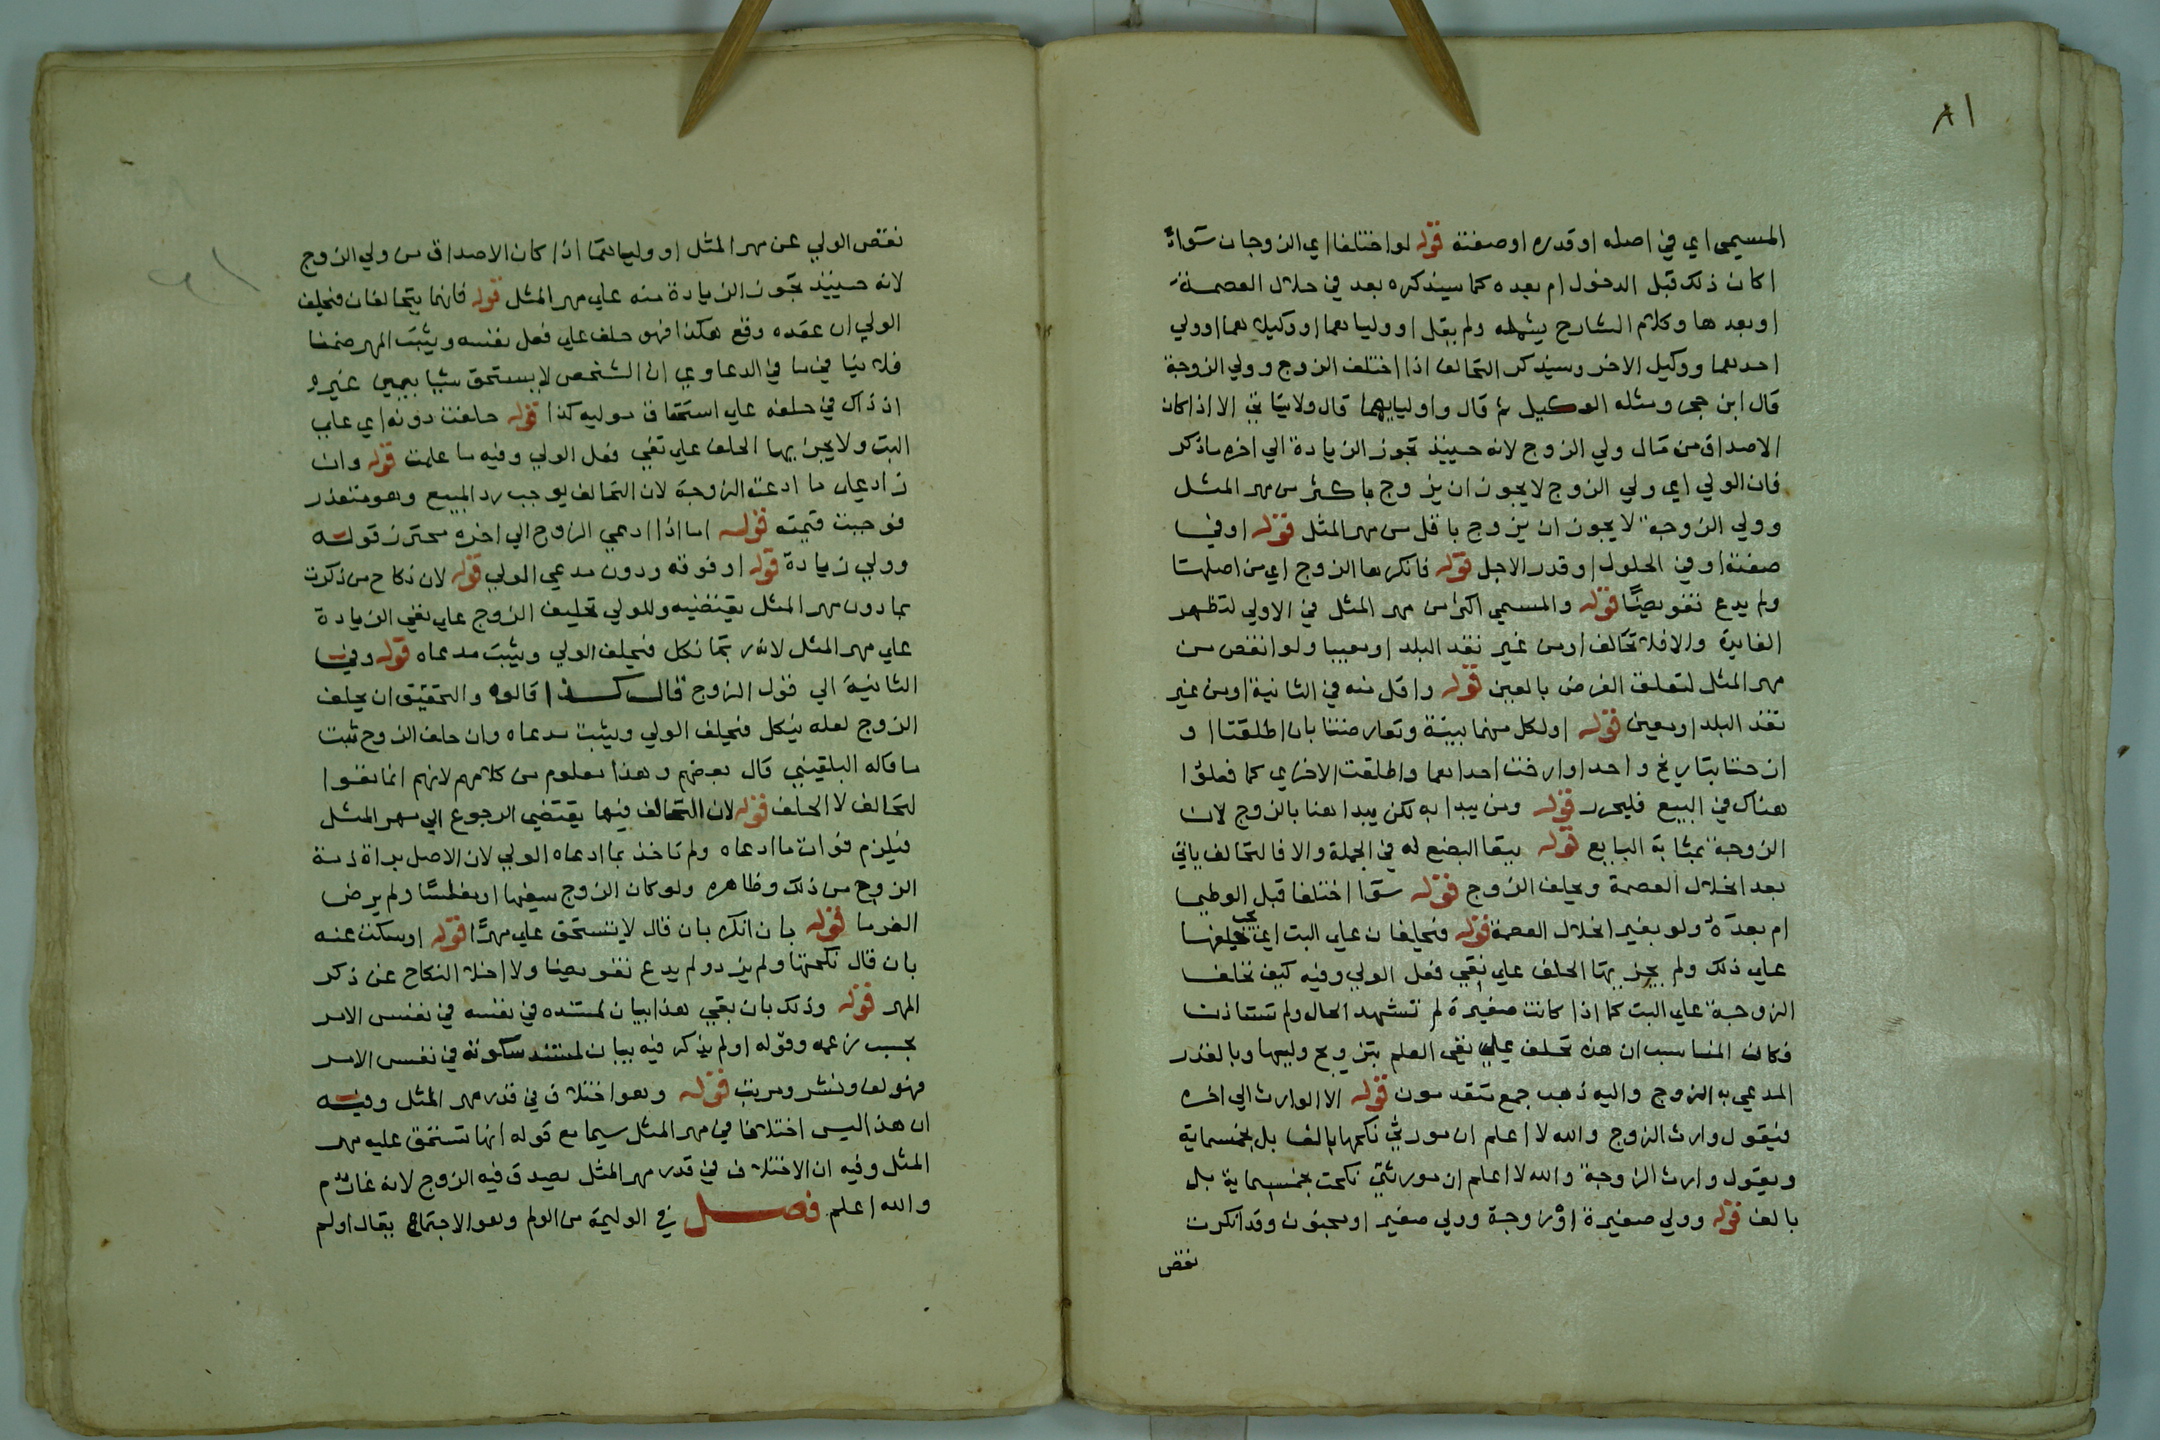 ٨١
المسيمي اي في اصله او قدره او صفته قوله لو اختلفا اي الزوجان سواء
اكان ذلك قبل الدخول ام بعده كما سيذكره بعد في حلال العصمة
او بعدها وكلام الشارح يشمله ولم يقل او ولياهما او وكيلاهما او ولي
احدهما ووكيل الاخر وسيذكر التحالف اذا اختلف الزوج وولي الزوجة
قال ابن حجر ومثله الوكيل ثم قال واولياوهما قال ولا يتاتي الا اذا كان
الاصداق من مال ولي الزوج لانه حينيذ تجوز الزيادة الي اخره ما ذكر
فان الولي اي ولي الزوج لا يجوز ان يزوج باكثر من مهر المثل
وولي الزوجة لا يجوز ان يزوج باقل من مهر المثل قوله او في
صفته او في الحلول او قدر الاجل قوله فانكرها الزوج اي من اصلها
ولم يدع تفويضا قوله والمسمي اكثر من مهر المثل في الاولي لتظهر
الفايدة والا فلا تحالف او من غير نقد البلد او معيبا ولو انقص من
مهر المثل لتعلق الغرض بالعين قوله واقل منه في الثانية او من غير
نقد البلد او معين قوله او لكل منهما بينة وتعارضتا بان اطلقتا او
ارختا بتاريخ واحد او ارخت احداهما واطلقت الاخري كما فعلوا
هناك في البيع فليحرر قوله ومن يبدا به لكن يبدا هنا بالزوج لان
الزوجة بمثابة البايع قوله يبقا البضع له في الجملة والا فالتحالف ياتي
بعد انحلال العصمة ويحلف الزوج قوله سوا اختلفا قبل الوطي
ام بعده ولو بغير انحلال العصمة قوله فيحلفان علي البت اي يجب تحليفها
علي ذلك ولم يجز بها الحلف علي نفي فعل الولي وفيه كيف تحلف
الزوجة علي البت كما اذا كانت صغيرة لم تشهد الحال ولم تستاذن
فكان المناسب ان هذه تحلف علي نفي العلم بتزويج وليها وبالقدر
المدعي به الزوج واليه ذهب جمع متقدمون قوله الا الوارث الي اخره
فيقول وارث الزوج والله لا اعلم ان مورثي نكحها بالف بل بخمسماية
ويقول وارث الزوجة والله لا اعلم ان مورثتي نكحت بخمسماية بل
بالف قوله وولي صغيرة او زوجة وولي صغير او مجنون وقد انكرت
نقص
نقص الولي عن مهر المثل او ولياهما اذا كان الاصداق من ولي الزوج
لانه حينيذ تجوز الزيادة منه علي مهر المثل قوله فانهما يتحالفان فيحلف
الولي ان عقده وقع هكذا فهو حلف علي فعل نفسه ويثبت المهر ضمنا
فلا ينافي ما في الدعاوي ان الشخص لا يستحق شيا بيمين غيره
اذ ذاك في حلفه علي استحقاق موليه كذا قوله حلفت دونه اي علي
البت ولا يجز بها الحلف علي نفي فعل الولي وفيه ما علمت قوله وان
زاد علي ما ادعته الزوجة لان التحالف يوجب رد المبيع وهو متعذر
فوجبت قيمته قوله اما اذا ادعي الزوج الي اخره محترز قوله
وولي زيادة قوله او فوقه ودون مدعي الولي قوله لان نكاح من ذكرت
بما دون مهر المثل يقتضيه وللولي تحليف الزوج علي نفي الزيادة
علي مهر المثل لانه ربما نكل فيحلف الولي ويثبت مدعاه قوله وفي
الثانية الي قول الزوج قال كذا قالوه والتحقيق ان يحلف
الزوج لعله ينكل فيحلف الولي ويثبت مدعاه وان حلف الزوج ثبت
ما قاله البلقيني قال بعضهم وهذا معلوم من كلامهم لانهم انما نفوا
التحالف لا الحلف قوله لان التحالف فيهما يقتضي الرجوع الي مهر المثل
فيلزم فوات ما ادعاه ولم ناخذ بما ادعاه الولي لان الاصل براة ذمة
الزوج من ذلك وظاهره ولو كان الزوج سفيها او مفلسا ولم يرض
الغرما قوله بان انكره بان قال لا تستحق علي مهرا قوله او سكت عنه
بان قال نكحتها ولم يزد ولم يدع تفويضا ولا اخلا النكاح عن ذكر
المهر قوله وذلك بان بقي هذا بيان لمستنده في نفسه في نفس الامر
بحسب زعمه وقوله او لم يذكر فيه بيان لمستند سكوته في نفس الامر
فهو لف ونشر ومرتب قوله وهو اختلاف في قدر مهر المثل وفيه
ان هذا ليس اختلافا في مهر المثل سيما مع قوله انها تستحق عليه مهر
المثل وفيه ان الاختلاف في قدر مهر المثل يصدق فيه الزوج لانه غارم
والله اعلم فصل في الوليمة من الولم وهو الاجتماع يقال اولم